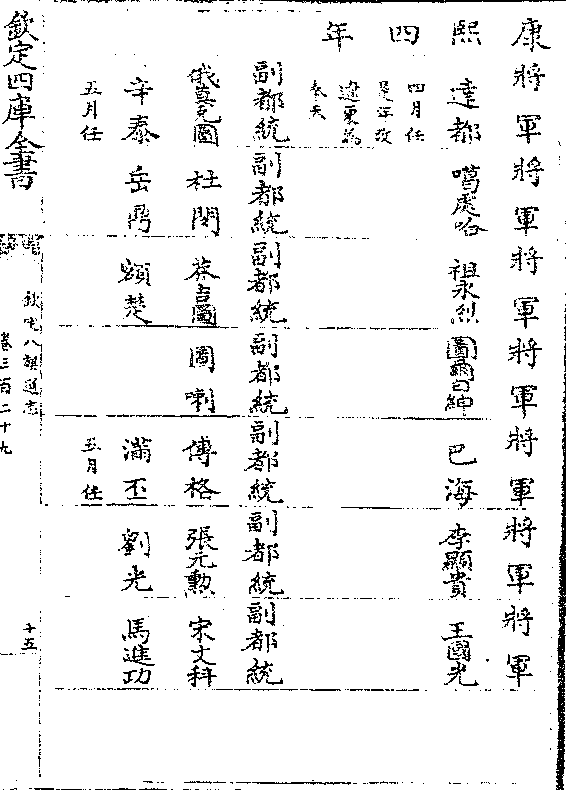 康熙四年
將軍 將軍 將軍 將軍 將軍 將軍 將軍
達都 噶處哈 祖永烈 圖爾白紳 巴海 李顯貴 王國光
四月任
是年改
遼東為
奉天
副都統 副都統 副都統 副都統 副都統 副都統 副都統
俄莫克圖 杜閔 蔡吉圖 圖喇 傅格 張元勲 宋文科
辛泰 岳鼎 額楚 滿丕 劉光 馬進功
五月任 五月任
欽定四庫全書
欽定八旗通志
卷三百二十九
十五